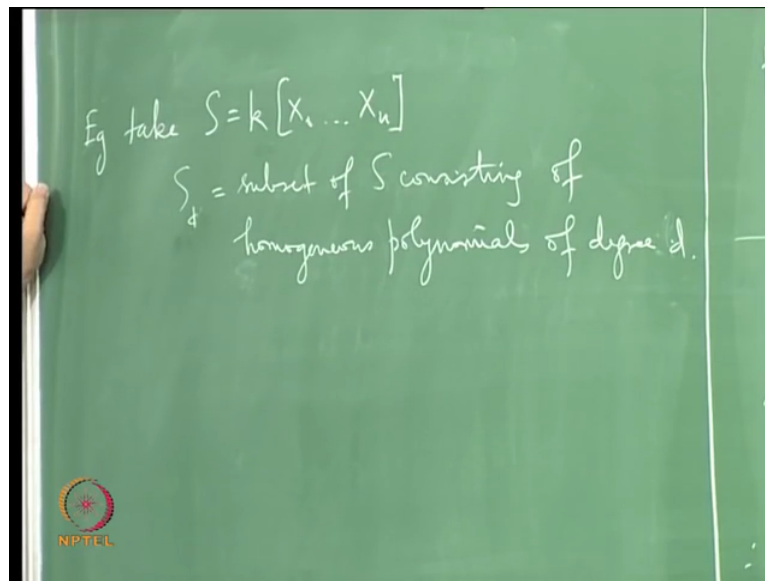 Eg take S = k[X₁ ... Xₙ]
S_d = subset of S consisting of
homogeneous polynomials of degree d.
NPTEL